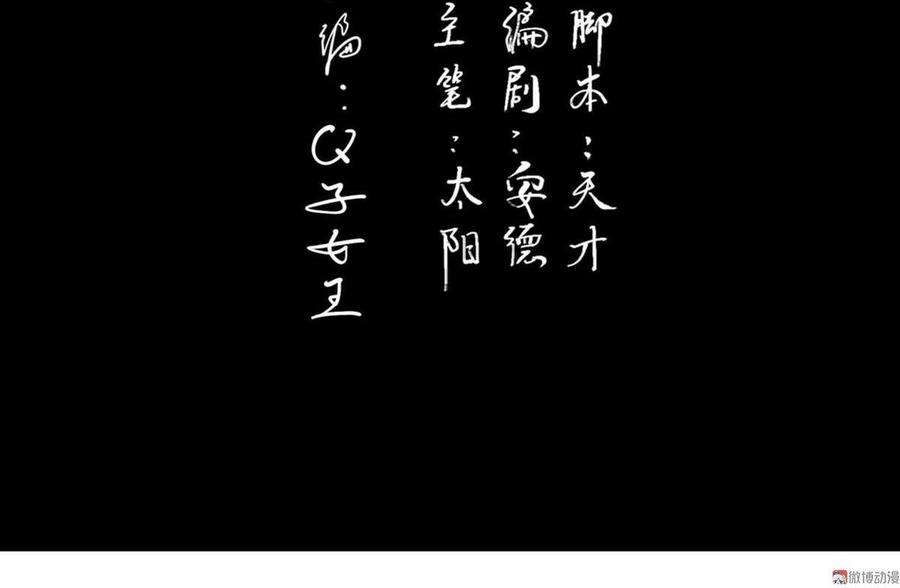 脚本：天才
编剧：安德
主笔：太阳
编：Q子女王
微博动漫